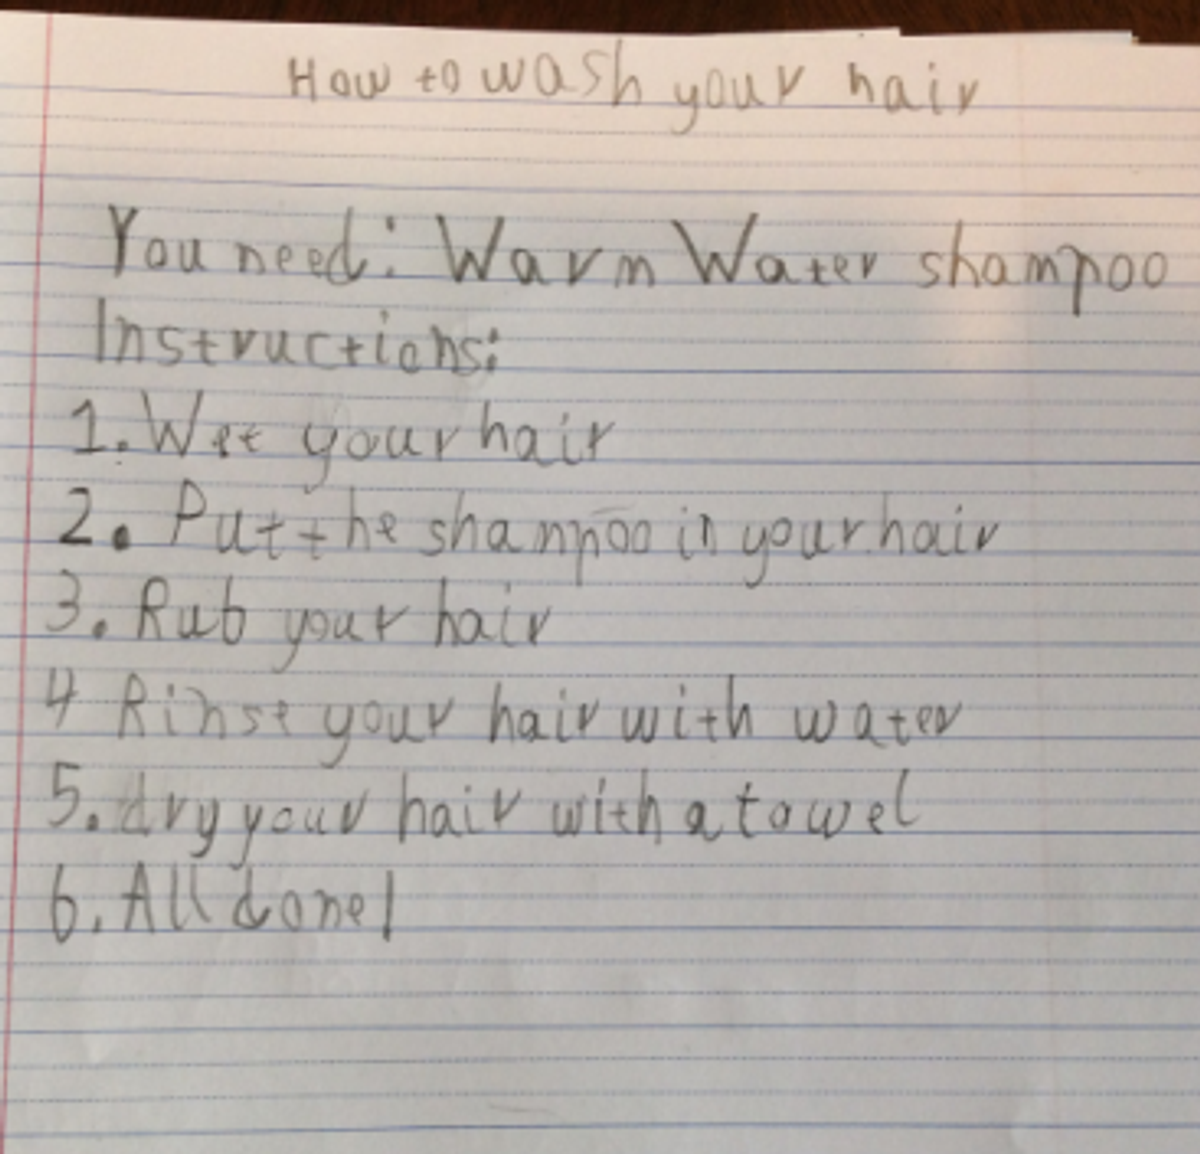 How to wash your hair
You need: Warm Water shampoo
Instructions:
1. Wet your hair
2. Put the shampoo in your hair
3. Rub your hair
4 Rinse your hair with water
5. dry your hair with a towel
6. All done!